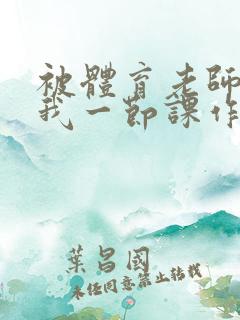 被體育老師
我一節課作
葉昌國
未经同意禁止转载